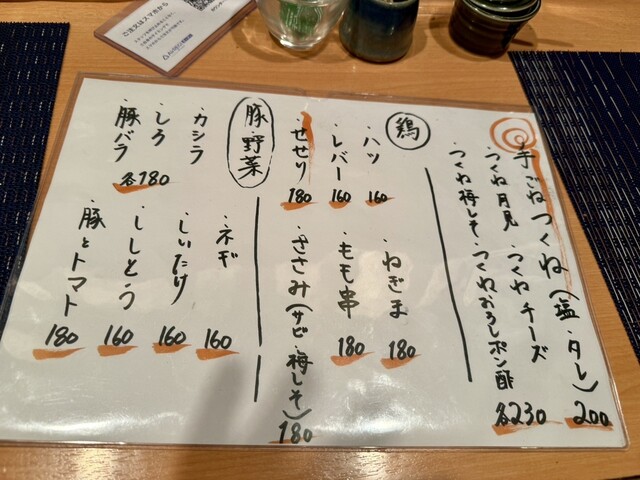 ご注文はスマホから
手ごねつくね(塩・タレ) 200
・つくね月見 ・つくねチーズ
・つくね梅しそ・つくねおろしポン酢 各230
鶏
・ハツ 160
・レバー 160
・せせり 180
・ねぎま 180
・もも串 180
・ささみ(サビ・梅しそ) 180
豚・野菜
・カシラ
・しろ
・豚バラ
各180
・ネギ 160
・しいたけ 160
・ししとう 160
・豚とトマト 180